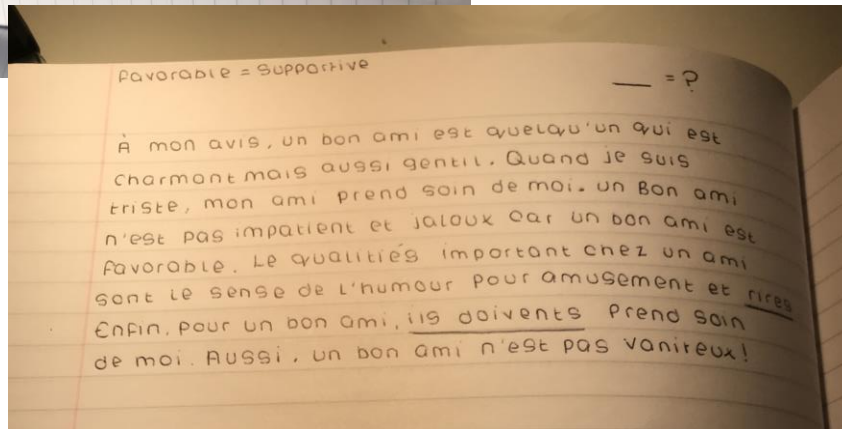 Favorable = Supportive
__ = ?
À mon avis, un bon ami est quelqu'un qui est
charmant mais aussi gentil. Quand je suis
triste, mon ami prend soin de moi. un Bon ami
n'est pas impatient et jaloux car un bon ami est
favorable. Le qualitiés important chez un ami
sont le sense de l'humour pour amusement et rires
Enfin, pour un bon ami, ils doivents prend soin
de moi. Aussi, un bon ami n'est pas vaniteux!